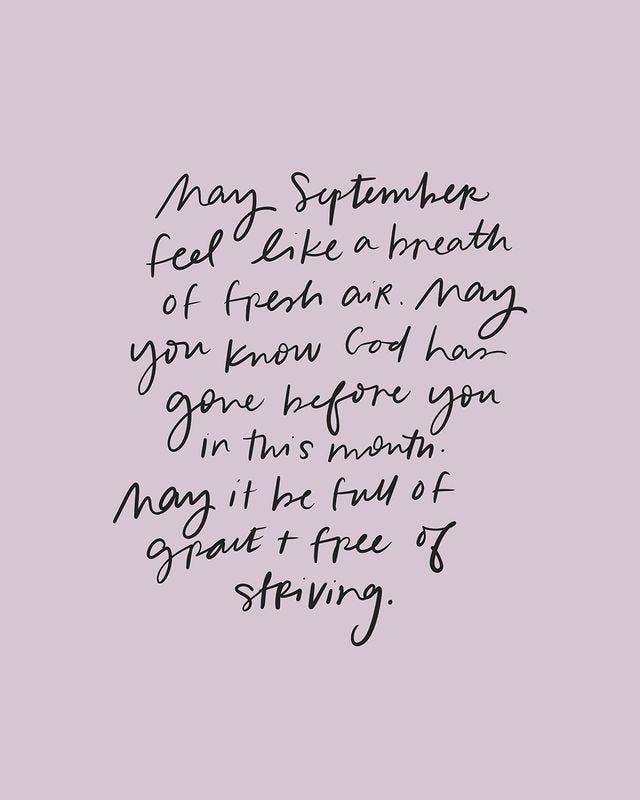 May September
feel like a breath
of fresh air. May
you know God has
gone before you
in this month.
May it be full of
grace + free of
striving.